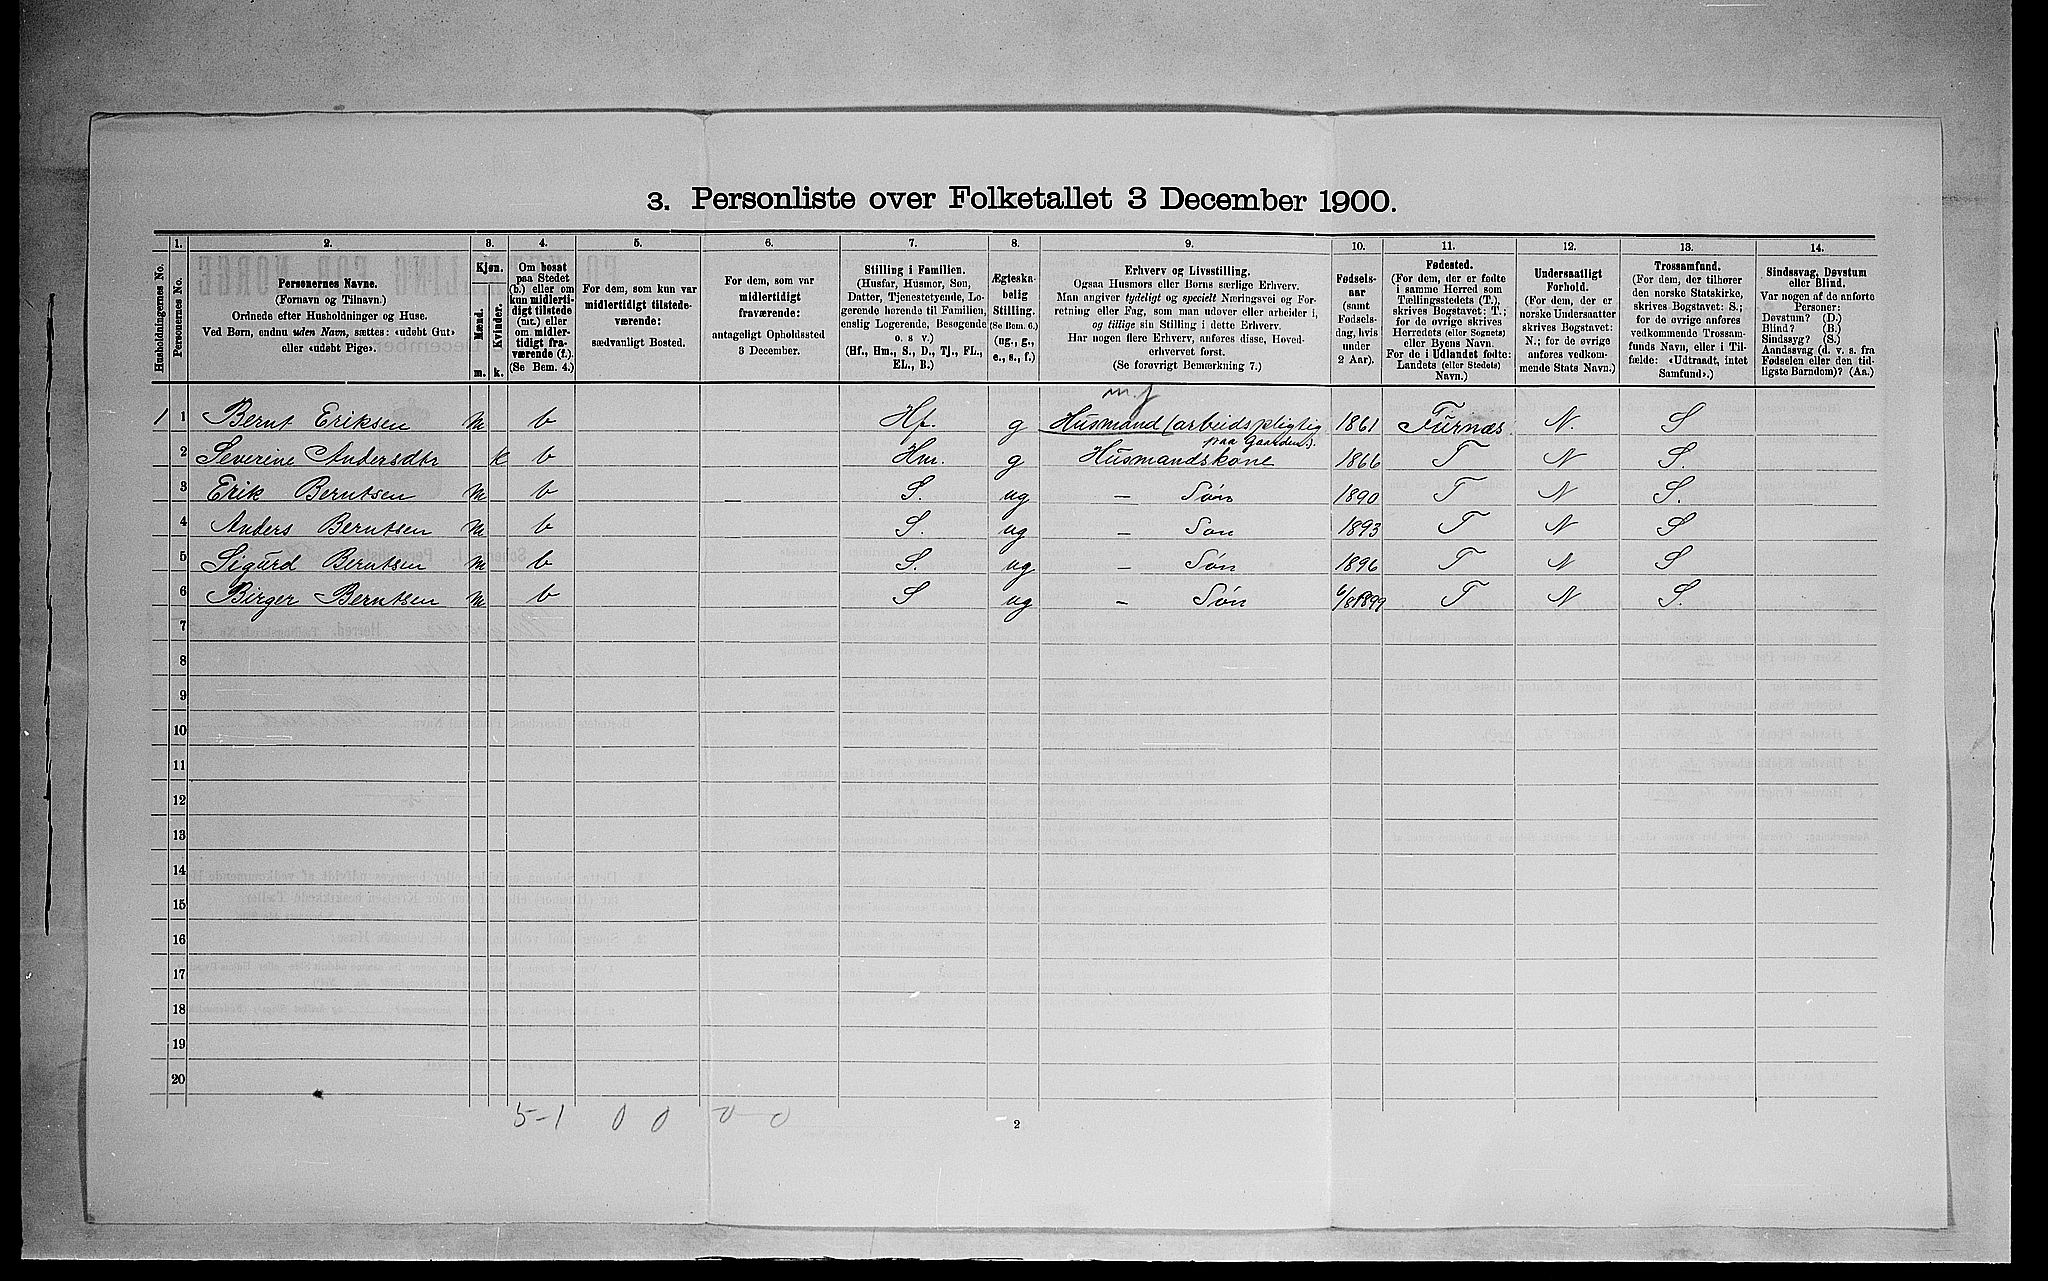 3. Personliste over Folketallet 3 December 1900.
1. 2. 3. 4. 5. 6. 7. 8. 9. 10. 11. 12. 13. 14.
Husholdningernes No.
Personernes No.
Personernes Navne.
(Fornavn og Tilnavn.)
Ordnede efter Husholdninger og Huse.
Ved Børn, endnu uden Navn, sættes: «udøbt Gut»
eller «udøbt Pige».
Kjøn.
Mænd.
Kvinder.
m. k.
Om bosat
paa Stedet
(b.) eller om
kun midlerti-
digt tilstede
(mt.) eller
om midler-
tidigt fra-
værende (f.)
(Se Bem. 4.)
For dem, som kun var
midlertidigt tilstede-
værende:
sædvanligt Bosted.
For dem, som var
midlertidigt
fraværende:
antageligt Opholdssted
3 December.
Stilling i Familien.
(Husfar, Husmor, Søn,
Datter, Tjenestetyende, Lo-
gerende hørende til Familien,
enslig Logerende, Besøgende
o. s. v.)
(Hf., Hm., S., D., Tj., FL.,
EL., B.)
Ægteska-
belig
Stilling.
(Se Bem. 6.)
(ug., g.,
e., s., f.)
Erhverv og Livsstilling.
Ogsaa Husmors eller Børns særlige Erhverv.
Man angiver tydeligt og specielt Næringsvei og For-
retning eller Fag, som man udøver eller arbeider i,
og tillige sin Stilling i dette Erhverv.
Har nogen flere Erhverv, anføres disse, Hoved-
erhvervet først.
(Se forøvrigt Bemærkning 7.)
Fødsels-
aar
(samt
Fødsels-
dag, hvis
under
2 Aar).
Fødested.
(For dem, der er fødte
i samme Herred som
Tællingsstedets (T.),
skrives Bogstavet: T.;
for de øvrige skrives
Herredets (eller Sognets)
eller Byens Navn.
For de i Udlandet fødte:
Landets (eller Stedets)
Navn.)
Undersaatligt
Forhold.
(For dem, der er
norske Undersaatter
skrives Bogstavet:
N.; for de øvrige
anføres vedkom-
mende Stats Navn.)
Trossamfund.
(For dem, der tilhører
den norske Statskirke,
skrives Bogstavet: S.;
for de øvrige anføres
vedkommende Trossam-
funds Navn, eller i Til-
fælde: «Udtraadt, intet
Samfund».)
Sindssvag, Døvstum
eller Blind.
Var nogen af de anførte
Personer:
Døvstum? (D.)
Blind? (B.)
Sindssyg? (S.)
Aandssvag (d. v. s. fra
Fødselen eller den tid-
ligste Barndom)? (Aa.)
m.j
1 1 Bernt Eriksen m b Hf. g Husmand (arbeidspligtig 1861 Furnæs. N. S
paa Gaarden).
2 Severine Andersdtr k b Hm. g Husmandskone 1866 T N S.
3 Erik Berntsen m b S. ug – Søn 1890 T N S.
4 Anders Berntsen m b S. ug – Søn 1893 T N S
5 Sigurd Berntsen m b S. ug – Søn 1896 T N S
6 Birger Berntsen m b S ug – Søn 6/8 1899 T N S.
7
8
9
10
11
12
13
14
15
16
17
18
19
20
5-1 0 0 0-0
2